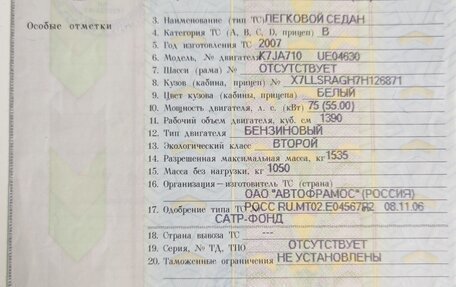 Особые отметки
3. Наименование (тип ТС) ЛЕГКОВОЙ СЕДАН
4. Категория ТС (A, B, C, D, прицеп) B
5. Год изготовления ТС 2007
6. Модель, № двигателя K7JA710 UE04630
7. Шасси (рама) № ОТСУТСТВУЕТ
8. Кузов (кабина, прицеп) № X7LLSRAGH7H126871
9. Цвет кузова (кабины, прицепа) БЕЛЫЙ
10. Мощность двигателя, л. с. (кВт) 75 (55.00)
11. Рабочий объем двигателя, куб. см 1390
12. Тип двигателя БЕНЗИНОВЫЙ
13. Экологический класс ВТОРОЙ
14. Разрешенная максимальная масса, кг 1535
15. Масса без нагрузки, кг 1050
16. Организация—изготовитель ТС (страна)
ОАО "АВТОФРАМОС" (РОССИЯ)
17. Одобрение типа ТС № РОСС RU.MT02.E04567 08.11.06
САТР-ФОНД
18. Страна вывоза ТС ---
19. Серия, № ТД, ТПО ОТСУТСТВУЕТ
20. Таможенные ограничения НЕ УСТАНОВЛЕНЫ